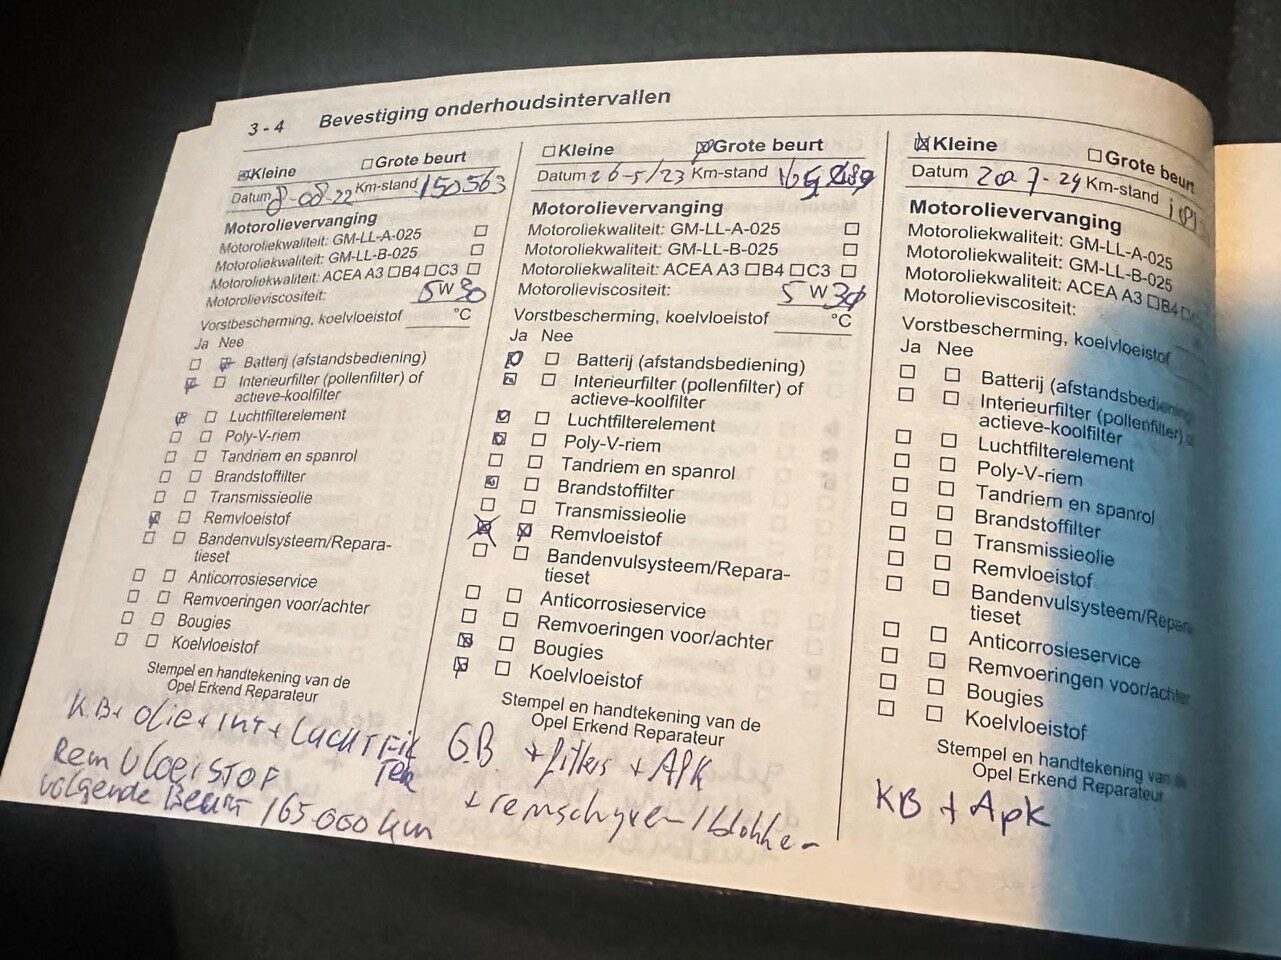 3 - 4 Bevestiging onderhoudsintervallen
Kleine Grote beurt
Datum 8-08-22 Km-stand 150.563
Motorolievervanging
Motoroliekwaliteit: GM-LL-A-025
Motoroliekwaliteit: GM-LL-B-025
Motoroliekwaliteit: ACEA A3 B4 C3
Motorolieviscositeit: 5 W 30
Vorstbescherming, koelvloeistof °C
Ja Nee
Batterij (afstandsbediening)
Interieurfilter (pollenfilter) of
actieve-koolfilter
Luchtfilterelement
Poly-V-riem
Tandriem en spanrol
Brandstoffilter
Transmissieolie
Remvloeistof
Bandenvulsysteem/Repara-
tieset
Anticorrosieservice
Remvoeringen voor/achter
Bougies
Koelvloeistof
Stempel en handtekening van de
Opel Erkend Reparateur
K.B+ olie + INT + LUCHTFIL
TER
Rem VloeiSTOF
volgende Beurt 165.000 km
Kleine Grote beurt
Datum 26-5/23 Km-stand
Motorolievervanging
Motoroliekwaliteit: GM-LL-A-025
Motoroliekwaliteit: GM-LL-B-025
Motoroliekwaliteit: ACEA A3 B4 C3
Motorolieviscositeit: 5 W 30
Vorstbescherming, koelvloeistof °C
Ja Nee
Batterij (afstandsbediening)
Interieurfilter (pollenfilter) of
actieve-koolfilter
Luchtfilterelement
Poly-V-riem
Tandriem en spanrol
Brandstoffilter
Transmissieolie
Remvloeistof
Bandenvulsysteem/Repara-
tieset
Anticorrosieservice
Remvoeringen voor/achter
Bougies
Koelvloeistof
Stempel en handtekening van de
Opel Erkend Reparateur
G.B. + filters + APK
+ remschyven/blokken
Kleine Grote beurt
Datum Km-stand
Motorolievervanging
Motoroliekwaliteit: GM-LL-A-025
Motoroliekwaliteit: GM-LL-B-025
Motoroliekwaliteit: ACEA A3 B4
Motorolieviscositeit:
Vorstbescherming, koelvloeistof
Ja Nee
Batterij (afstandsbediening)
Interieurfilter (pollenfilter)
actieve-koolfilter
Luchtfilterelement
Poly-V-riem
Tandriem en spanrol
Brandstoffilter
Transmissieolie
Remvloeistof
Bandenvulsysteem/Repara
tieset
Anticorrosieservice
Remvoeringen voor/achter
Bougies
Koelvloeistof
Stempel en handtekening van de
Opel Erkend Reparateur
KB + Apk